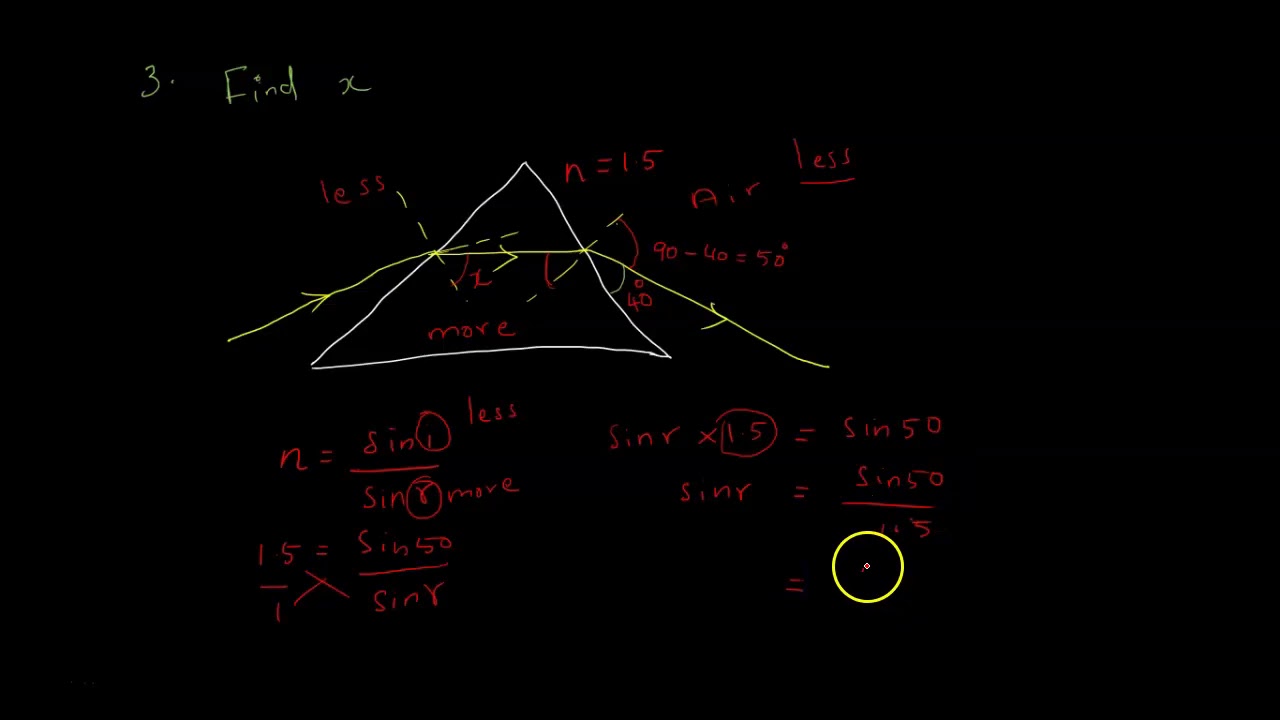 3. Find x
less
n = 1.5
Air less
90 - 40 = 50°
x
40°
more
n = sin i less
sin r more
1.5 = sin 50
1 sin r
sin r × 1.5 = sin 50
sin r = sin 50
1.5
=